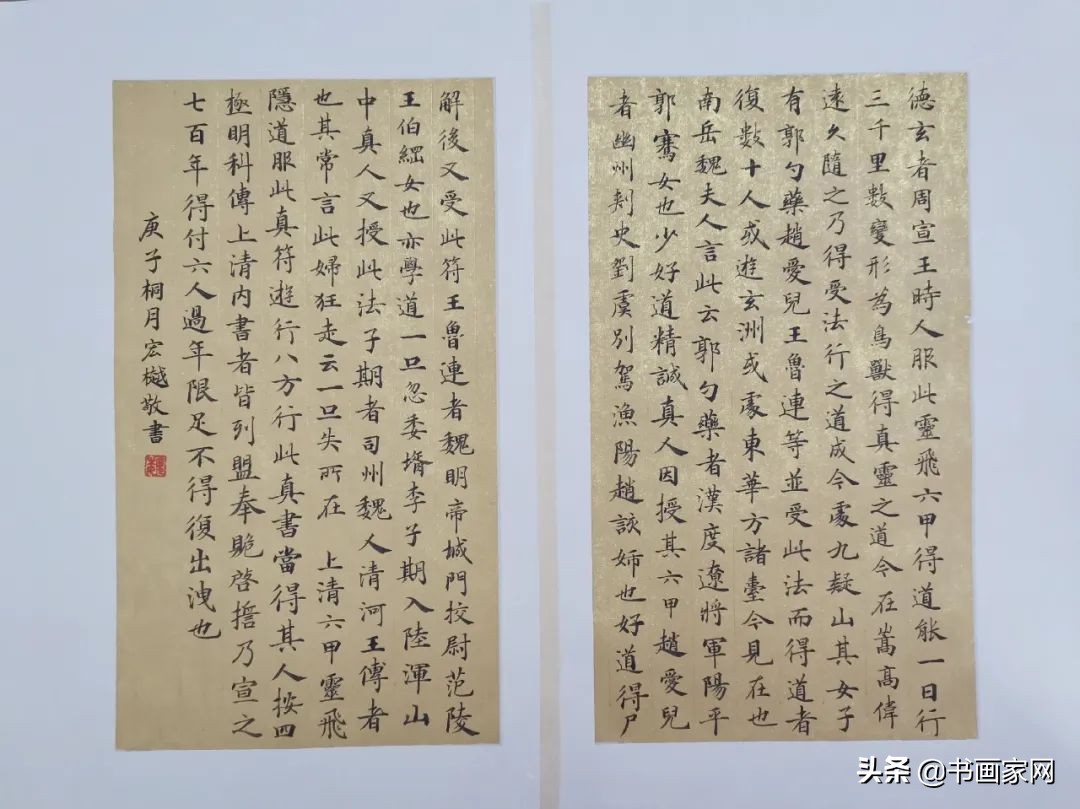 德玄者周宣王時人服此靈飛六甲得道能一日行
三千里數變形為鳥獸得真靈之道今在嵩高偉
遠久隨之乃得受法行之道成今處九疑山其女子
有郭勺藥趙愛兒王魯連等並受此法而得道者
復數十人或遊玄洲或處東華方諸臺今見在也
南岳魏夫人言此云郭勺藥者漢度遼將軍陽平
郭騫女也少好道精誠真人因授其六甲趙愛兒
者幽州刾史劉虞別駕漁陽趙該姉也好道得尸
解後又受此符王魯連者魏明帝城門挍尉范陵
王伯綱女也亦學道一旦忽委壻李子期入陸渾山
中真人又授此法子期者司州魏人清河王傳者
也其常言此婦狂走云一旦失所在 上清六甲靈飛
隱道服此真符遊行八方行此真書當得其人按四
極明科傳上清内書者皆列盟奉贶啓擔乃宣之
七百年得付六人過年限足不得復出洩也
庚子桐月宏樾敬書
头条 @书画家网